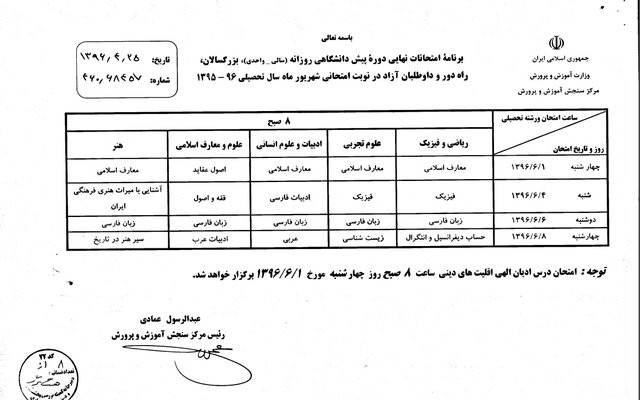 باسمه تعالی
جمهوری اسلامی ایران
وزارت آموزش و پرورش
مرکز سنجش آموزش و پرورش
برنامۀ امتحانات نهایی دورۀ پیش دانشگاهی روزانه (سالی _ واحدی)، بزرگسالان،
راه دور و داوطلبان آزاد در نوبت امتحانی شهریور ماه سال تحصیلی ۹۶ - ۱۳۹۵
تاریخ: ۱۳۹۶،۴،۲۵
شماره:
ساعت امتحان ورشته تحصیلی
روز و تاریخ امتحان
۸ صبح
ریاضی و فیزیک علوم تجربی ادبیات و علوم انسانی علوم و معارف اسلامی هنر
چهار شنبه ۱۳۹۶/۶/۱ معارف اسلامی معارف اسلامی معارف اسلامی اصول عقاید معارف اسلامی
شنبه ۱۳۹۶/۶/۴ فیزیک فیزیک ادبیات فارسی فقه و اصول آشنایی با میراث هنری فرهنگی
ایران
دوشنبه ۱۳۹۶/۶/۶ زبان فارسی زبان فارسی زبان فارسی زبان فارسی زبان فارسی
چهارشنبه ۱۳۹۶/۶/۸ حساب دیفرانسیل و انتگرال زیست شناسی عربی ادبیات عرب سیر هنر در تاریخ
توجه : امتحان درس ادیان الهی اقلیت های دینی ساعت ۸ صبح روز چهارشنبه مورخ ۱۳۹۶/۶/۱ برگزار خواهد شد.
عبدالرسول عمادی
رئیس مرکز سنجش آموزش و پرورش
کد ۲۲